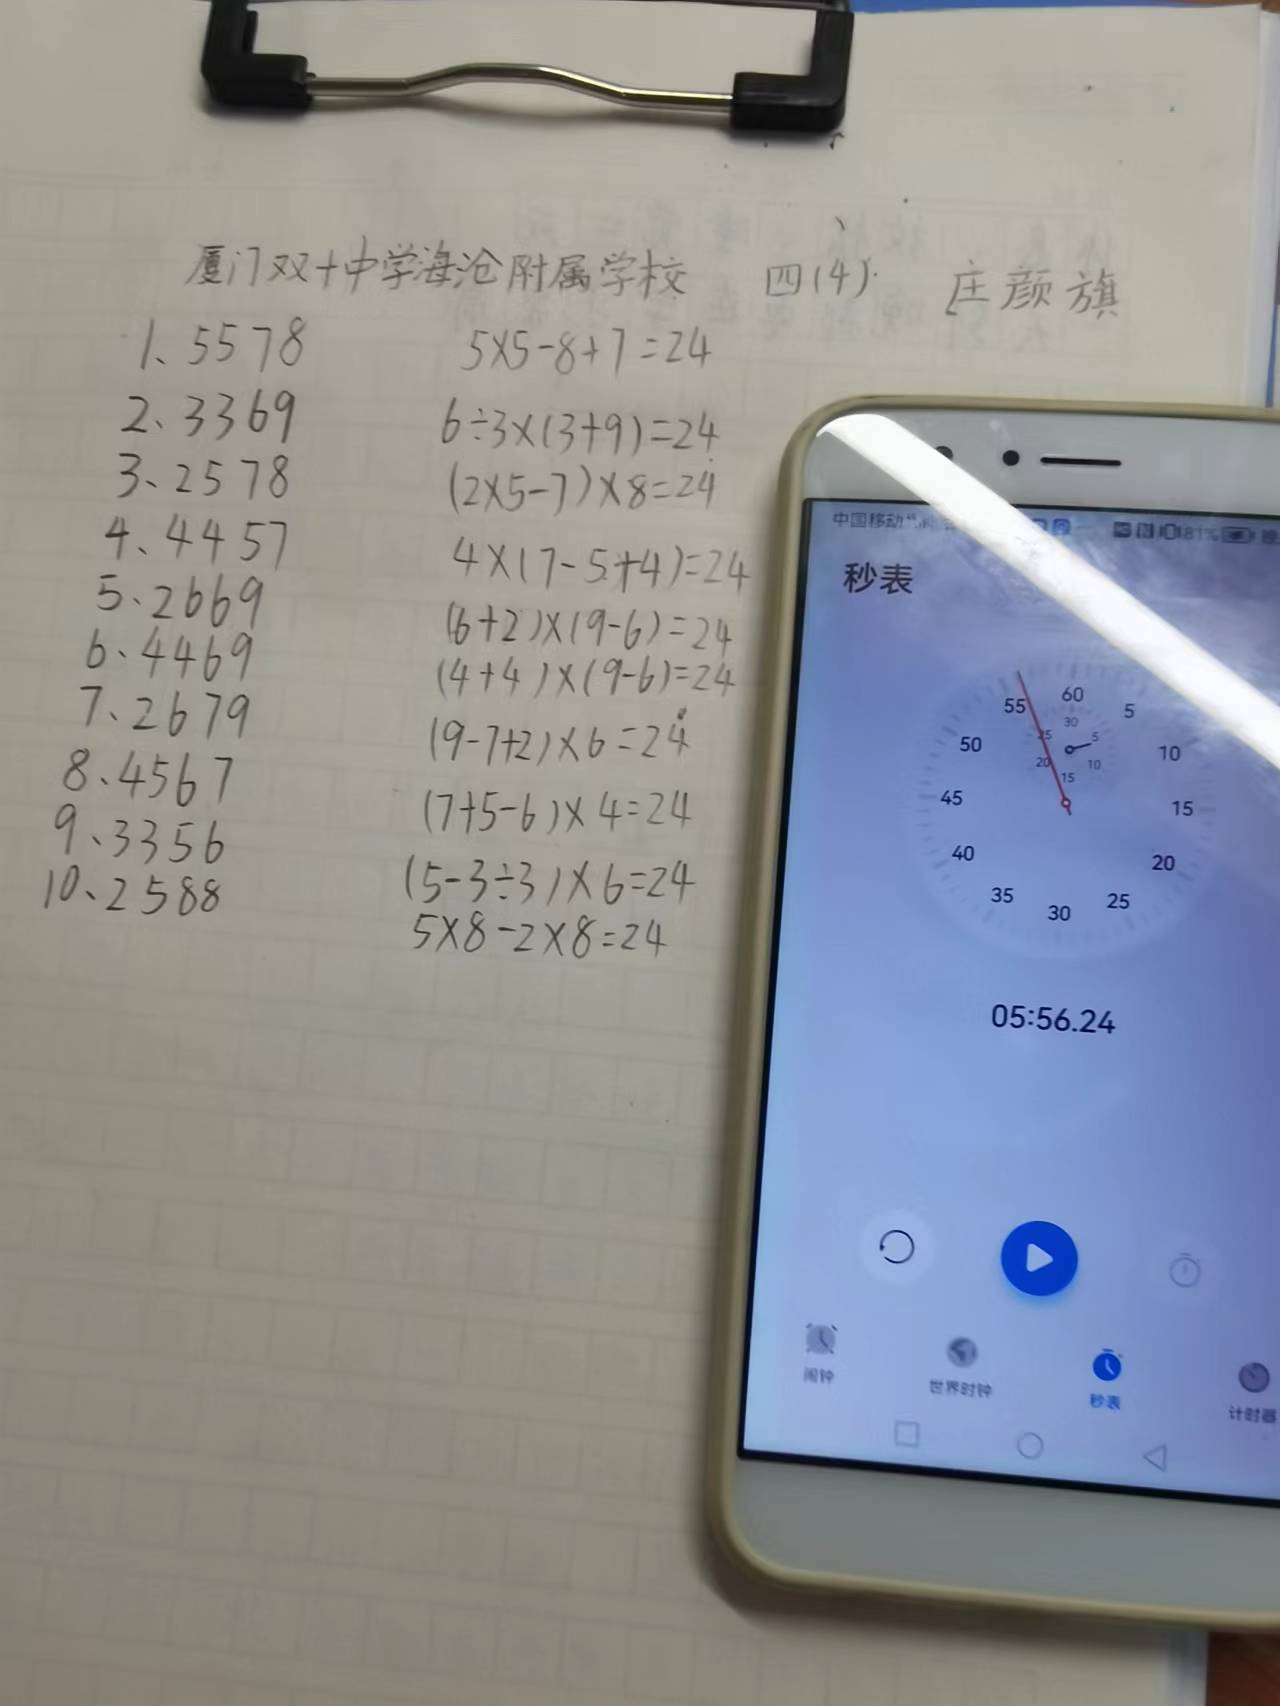 厦门双十中学海沧附属学校 四(4) 庄颜旗
1、5578 5×5-8+7=24
2、3369 6÷3×(3+9)=24
3、2578 (2×5-7)×8=24
4、4457 4×(7-5+4)=24
5、2669 (6+2)×(9-6)=24
6、4469 (4+4)×(9-6)=24
7、2679 (9-7+2)×6=24
8、4567 (7+5-6)×4=24
9、3356 (5-3÷3)×6=24
10、2588 5×8-2×8=24
中国移动
81%
秒表
60
55 5
50 10
45 15
40 20
35 25
30
30
25 5
20 10
15
05:56.24
闹钟 世界时钟 秒表 计时器